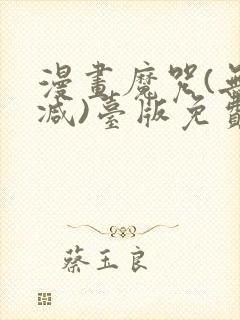 漫畫魔咒(無
減)臺版免費
蔡玉良